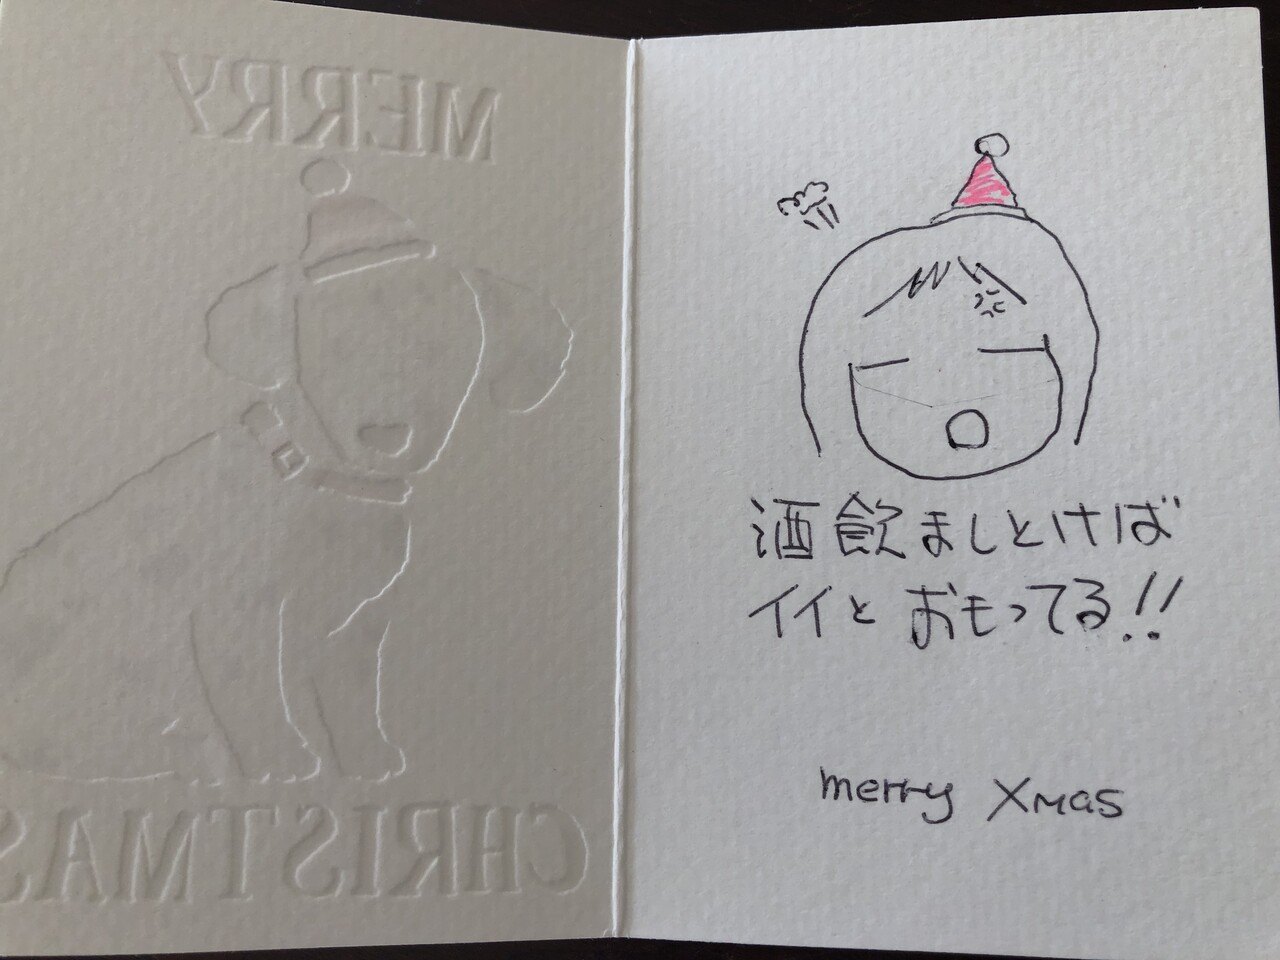 MERRY
CHRISTMAS
酒飲ましとけば
イイとおもってる!!
merry Xmas